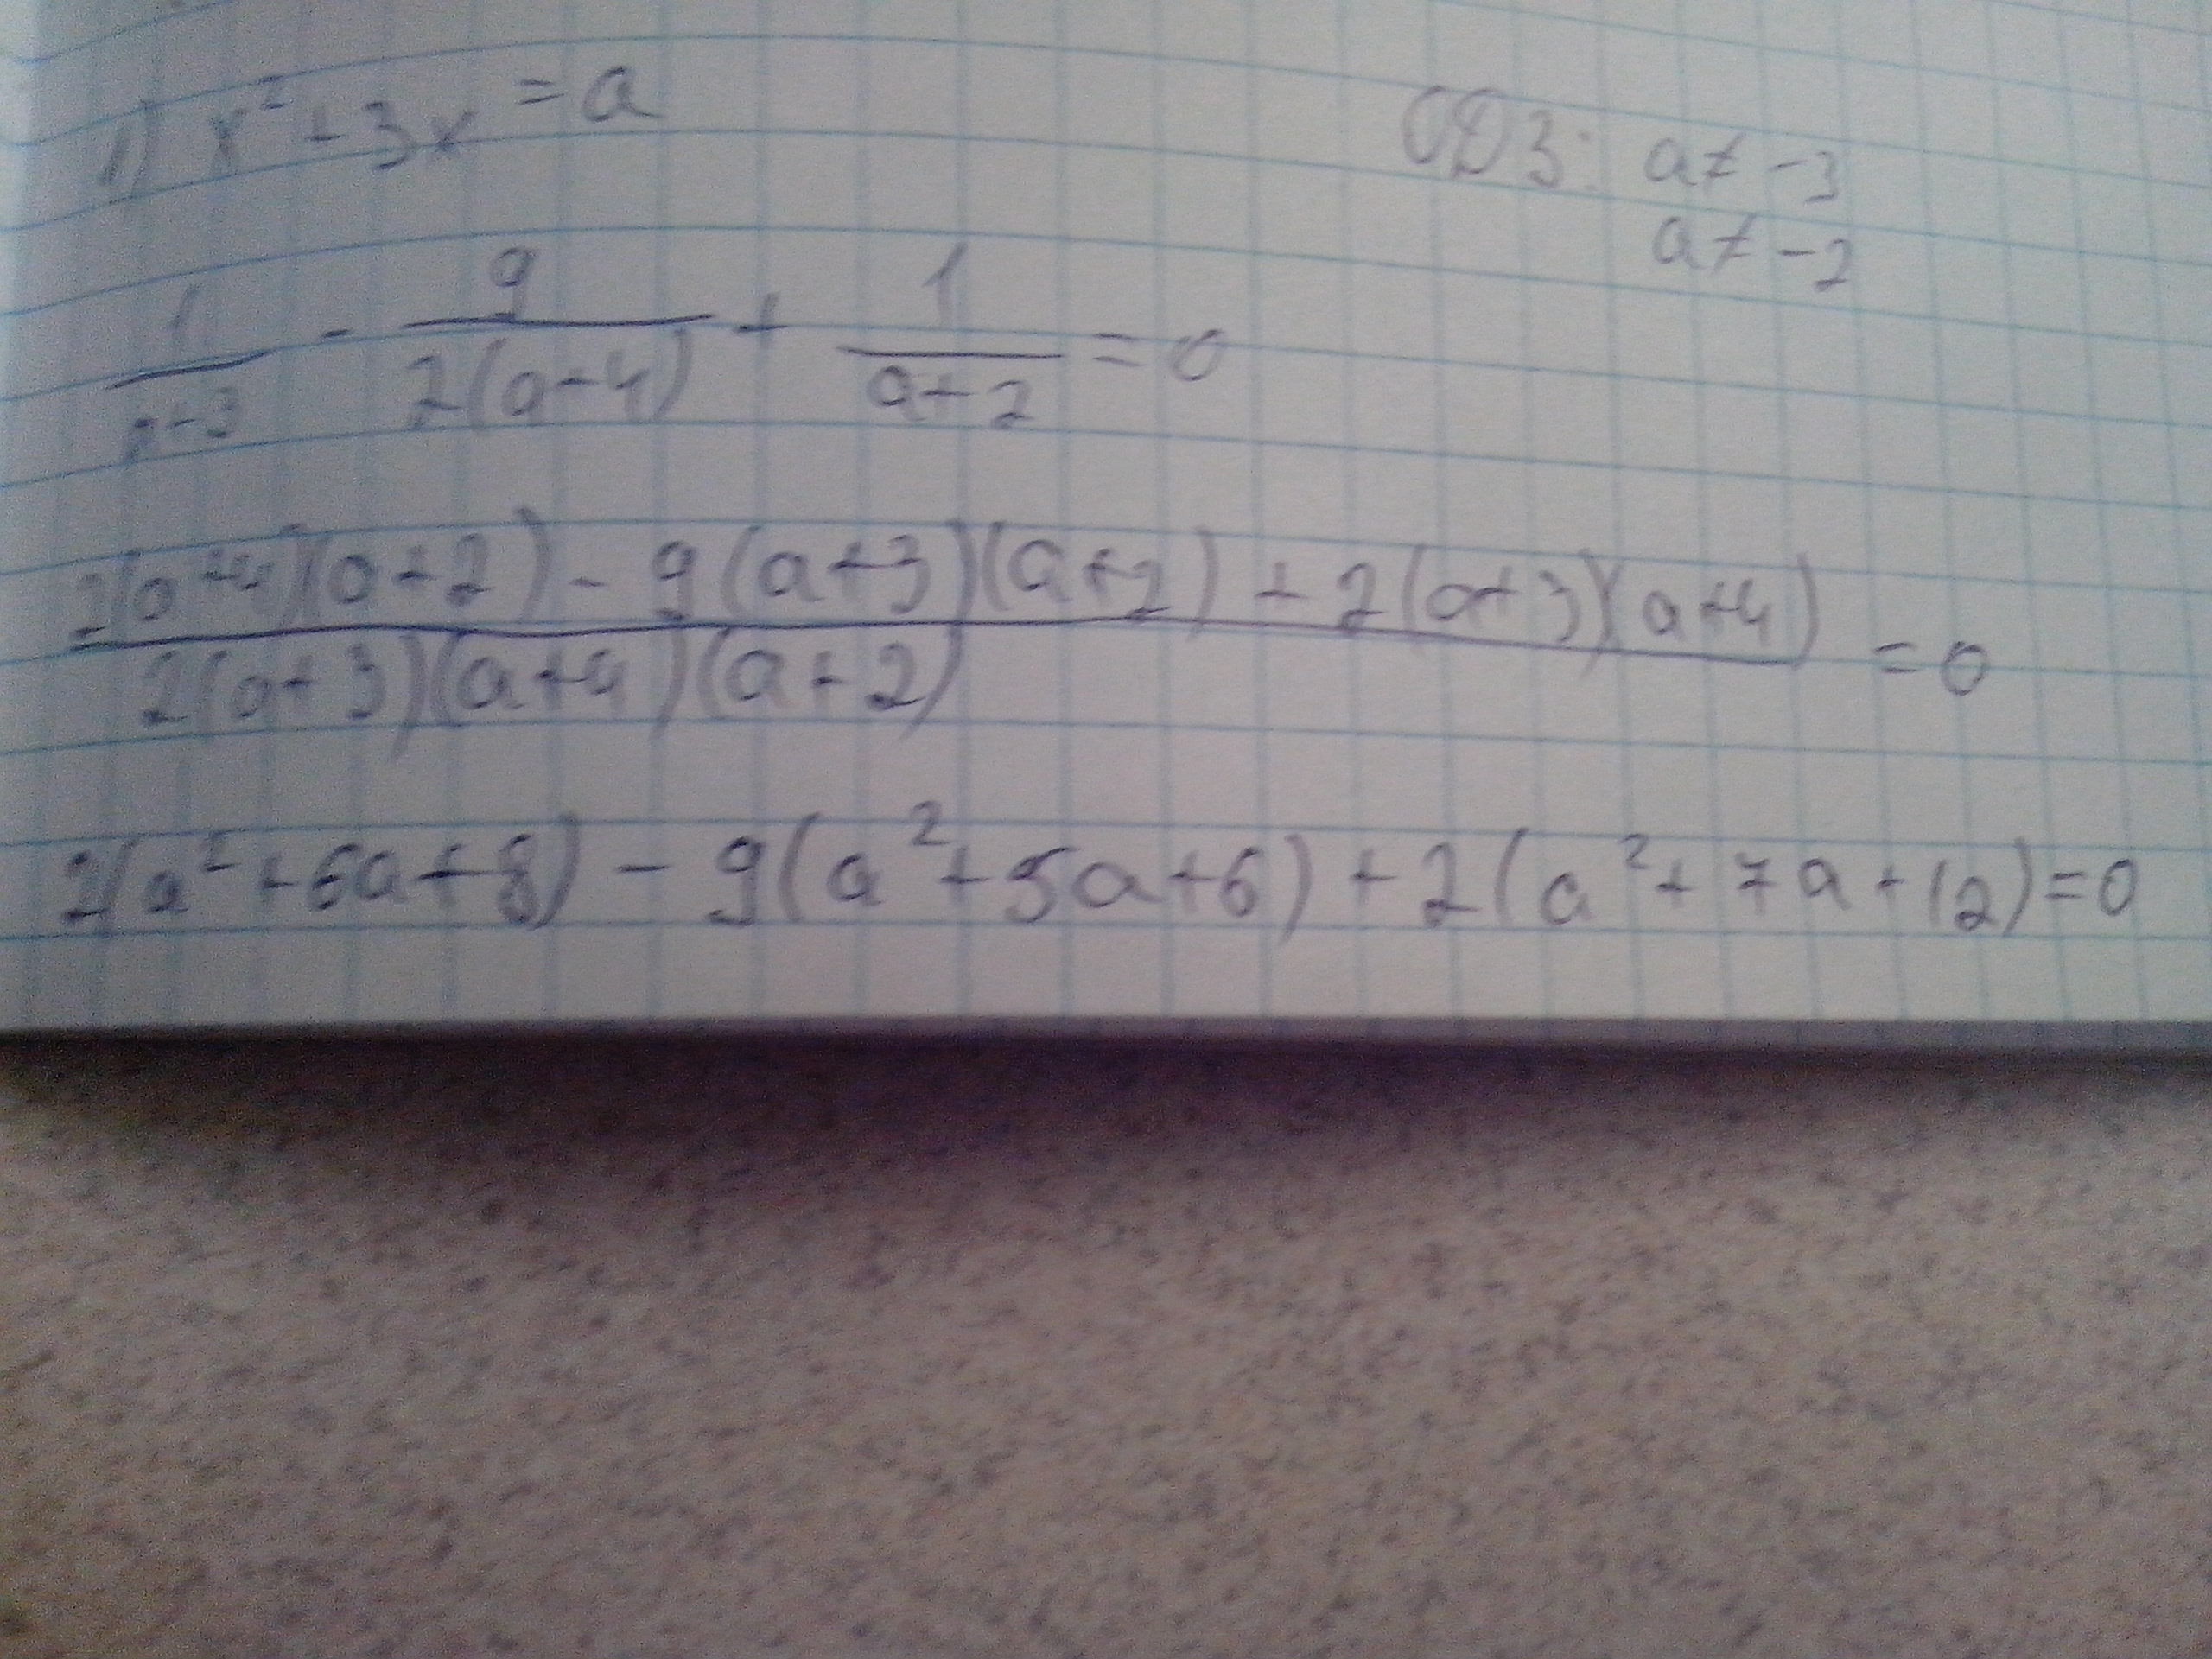 1) x² + 3x = a
ОДЗ: a ≠ -3
a ≠ -2
1/(a+3) - 9/(2(a+4)) + 1/(a+2) = 0
(2(a+4)(a+2) - 9(a+3)(a+2) + 2(a+3)(a+4))/(2(a+3)(a+4)(a+2)) = 0
2(a²+6a+8) - 9(a²+5a+6) + 2(a²+7a+12)=0